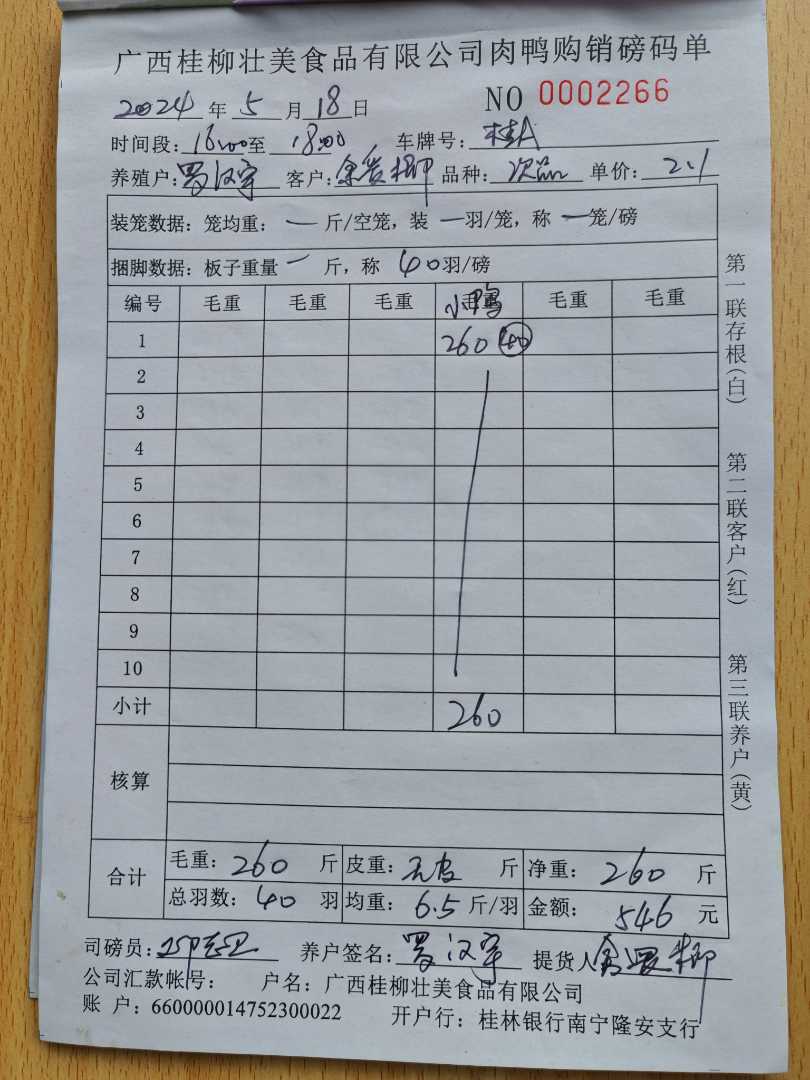 广西桂柳壮美食品有限公司肉鸭购销磅码单
2024 年 5 月 18 日 NO 0002266
时间段: 16:00 至 18:00 车牌号: 桂A
养殖户: 罗汉宇 客户: 品种: 次品 单价: 2.1
装笼数据: 笼均重: 一 斤/空笼, 装 一 羽/笼, 称 一 笼/磅
捆脚数据: 板子重量 一 斤, 称 40 羽/磅
编号 毛重 毛重 毛重 小鸭 毛重 毛重
1 260 40
2
3
4
5
6
7
8
9
10
小计 260
核算
合计 毛重: 260 斤 皮重: 无皮 斤 净重: 260 斤
总羽数: 40 羽 均重: 6.5 斤/羽 金额: 546 元
司磅员: 养户签名: 罗汉宇 提货人
公司汇款帐号: 户名: 广西桂柳壮美食品有限公司
账 户: 660000014752300022 开户行: 桂林银行南宁隆安支行
第一联存根(白)
第二联客户(红)
第三联养户(黄)